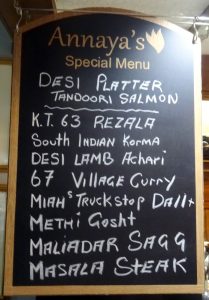 Annaya's
Special Menu
DESI PLATTER
TANDOORI SALMON
K.T. 63 REZALA
South Indian Korma
DESI LAMB Achari
67 Village Curry
MIAH'S Truckstop Dall
METHI Gosht
MALIADAR SAGG
MASALA STEAK